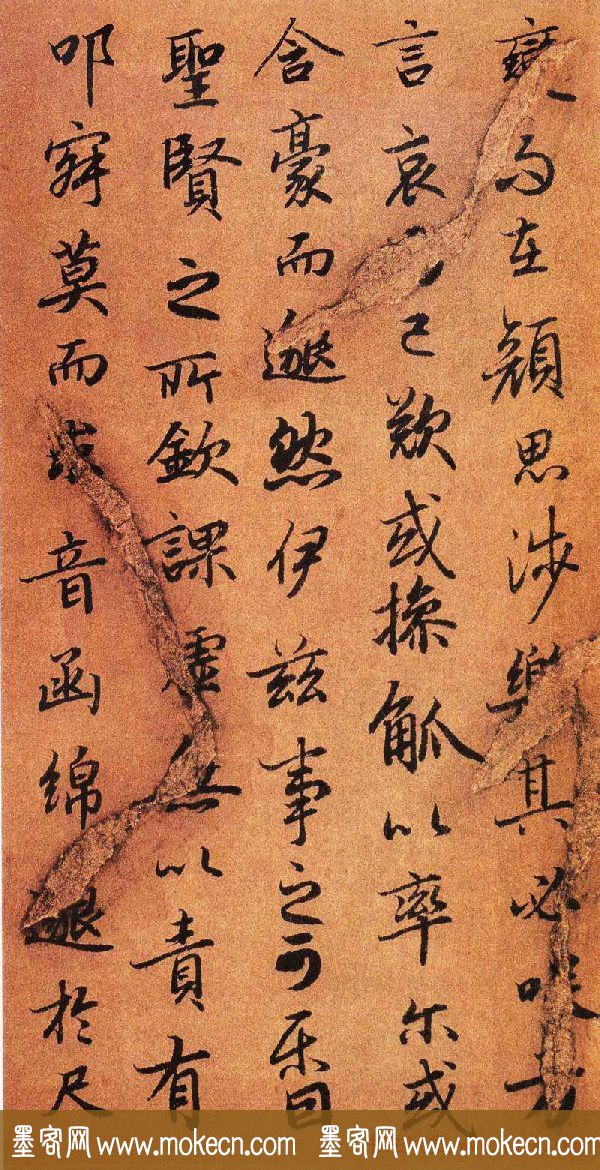 變而在顏思涉樂其必咲方
言哀而已歎或操觚以率尔或
含豪而邈然伊茲事之可樂固
聖賢之所欽課虛無以責有
叩寂莫而求音函綿邈於尺
墨客网 www.mokecn.com 墨客网 www.mokecn.com